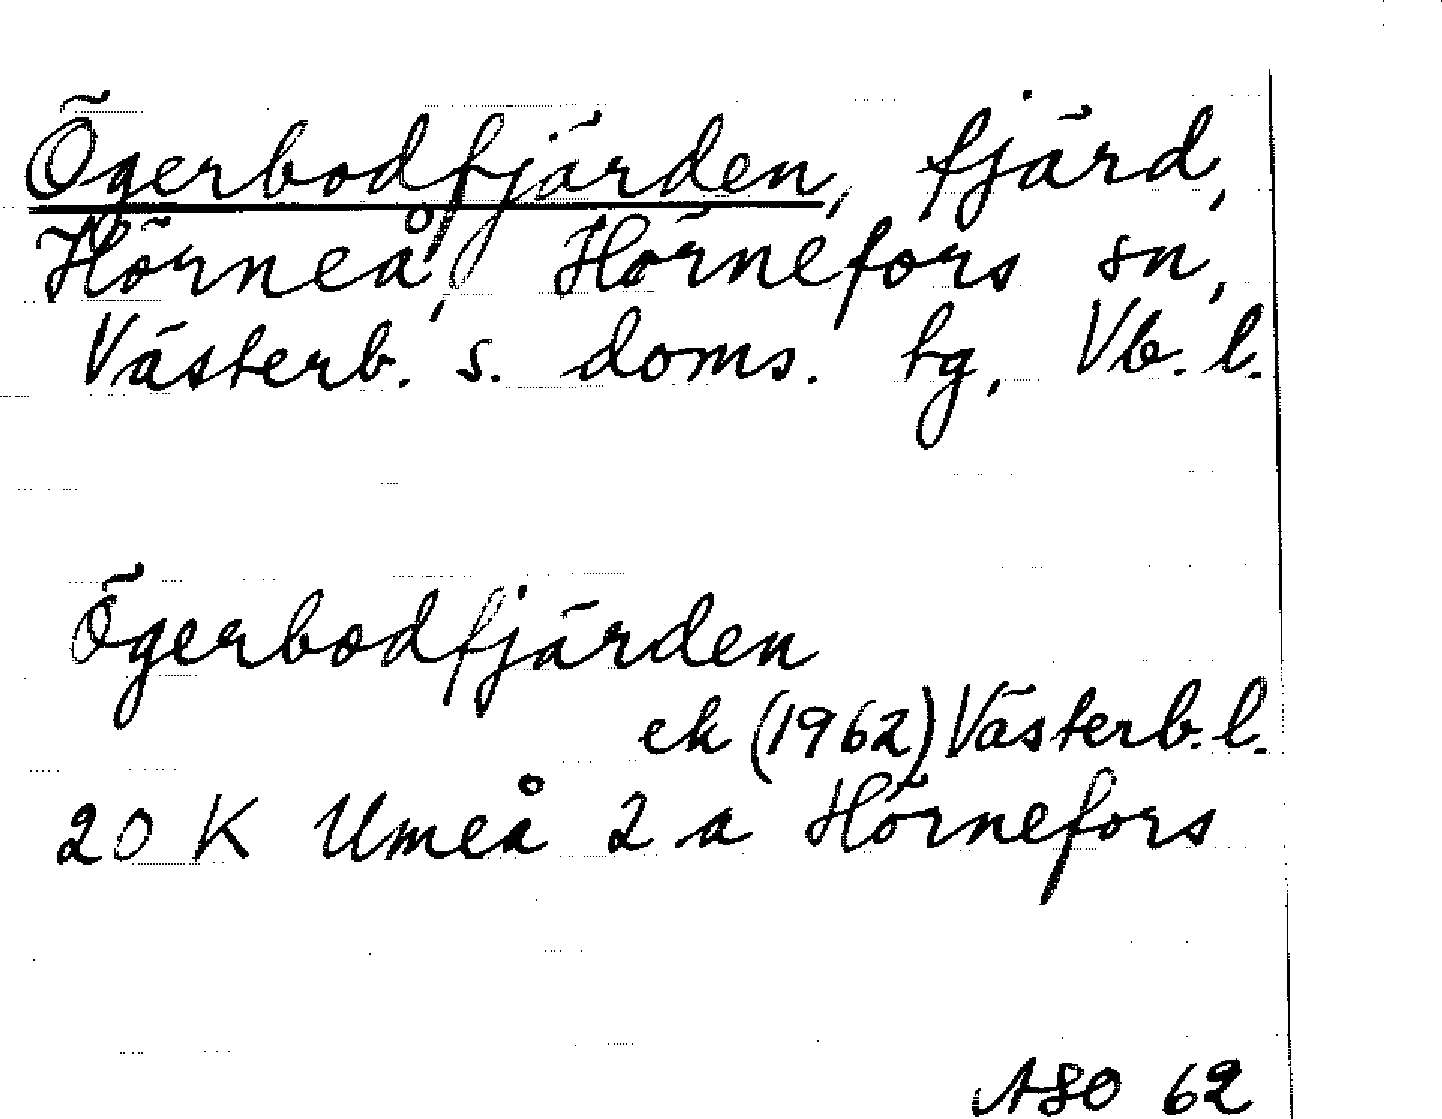 Ögerbodfjärden, fjärd,
Hörneå, Hörnefors sn,
Västerb. s. doms. tg, Vb. l.
Ögerbodfjärden
ek (1962) Västerb. l.
20 K Umeå 2 a Hörnefors
ASO 62